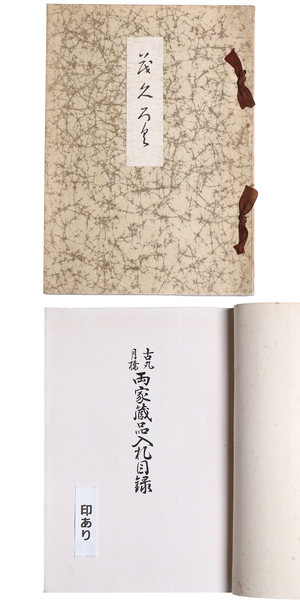 茂久ろく
古丸
月橋
両家蔵品入札目録
印あり